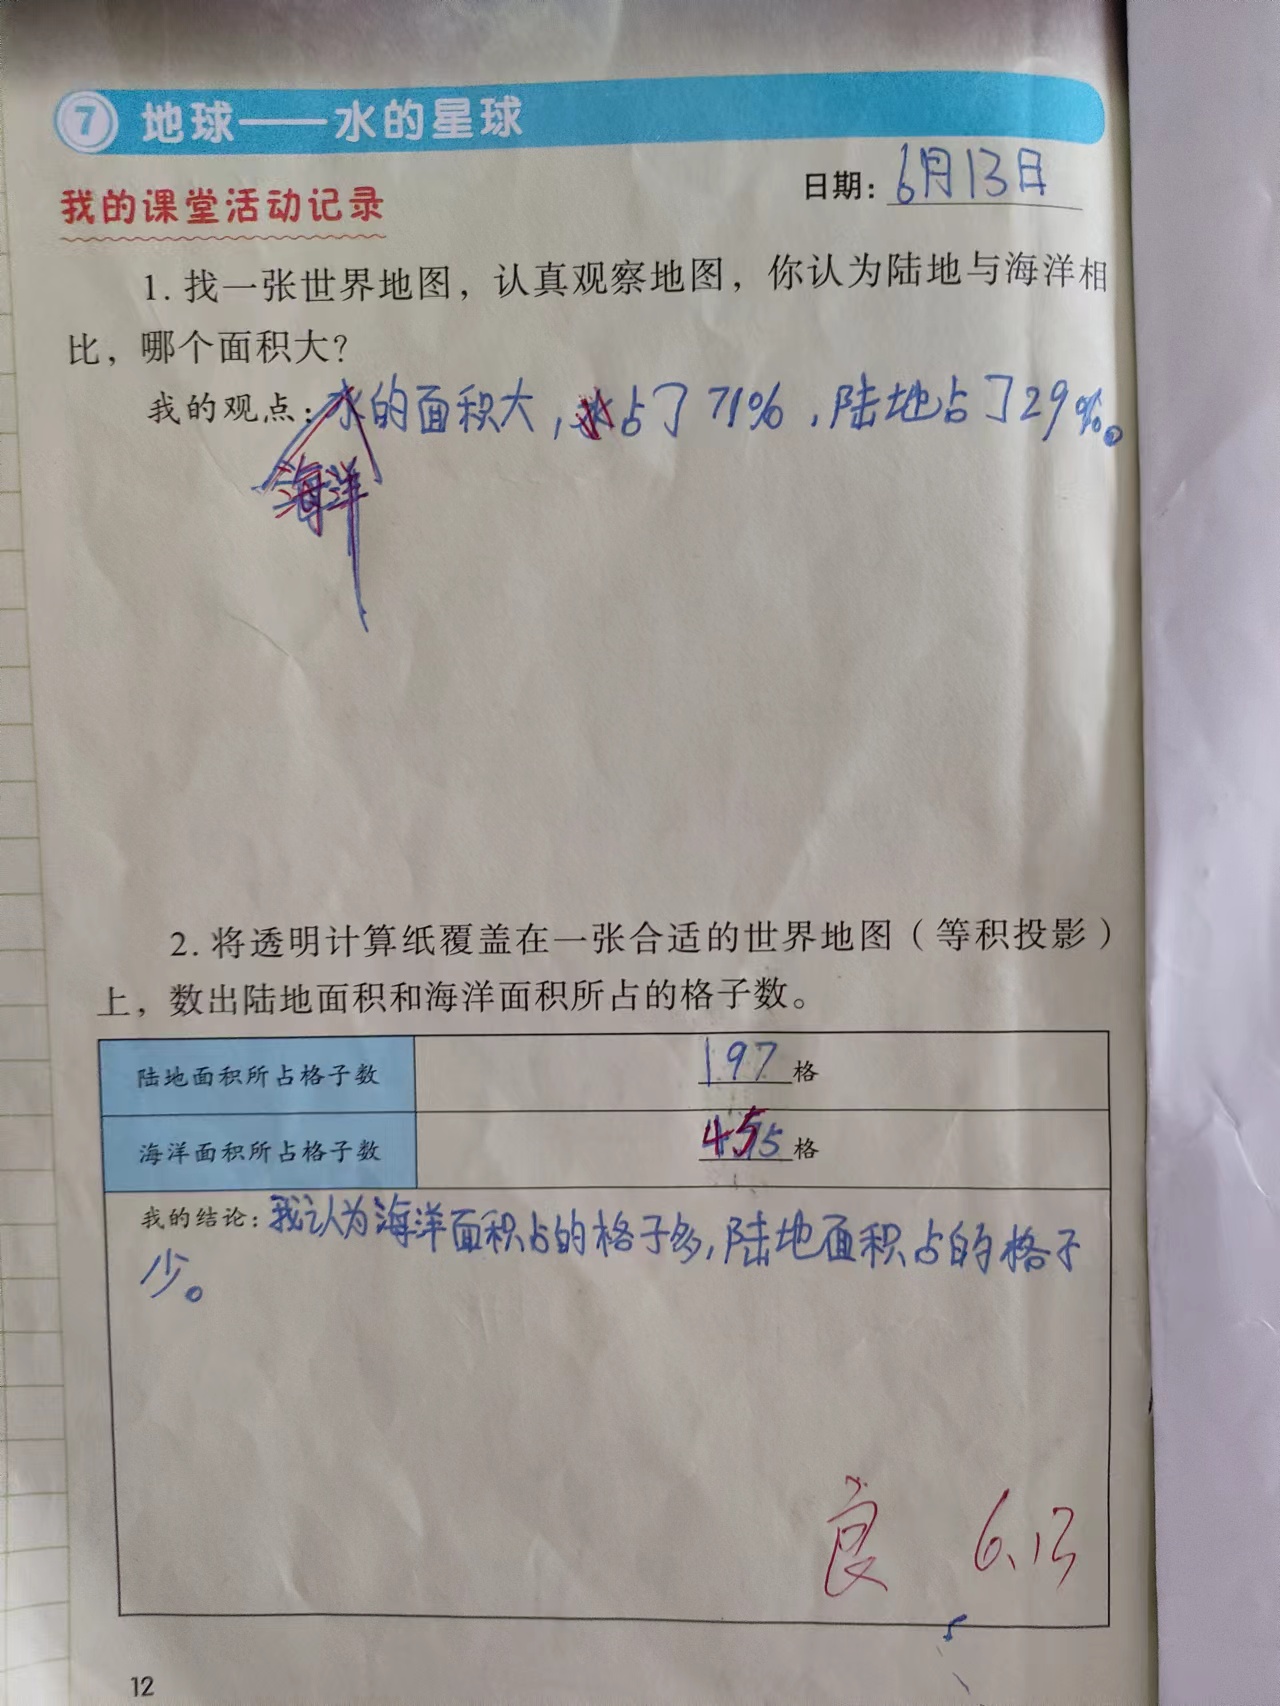 7 地球——水的星球
我的课堂活动记录
日期：6月13日
1. 找一张世界地图，认真观察地图，你认为陆地与海洋相
比，哪个面积大？
我的观点：水的面积大，水占了71%，陆地占了29%。
海洋
2. 将透明计算纸覆盖在一张合适的世界地图（等积投影）
上，数出陆地面积和海洋面积所占的格子数。
陆地面积所占格子数 197格
海洋面积所占格子数 格
我的结论：我认为海洋面积占的格子多，陆地面积占的格子
少。
良 6.13
12